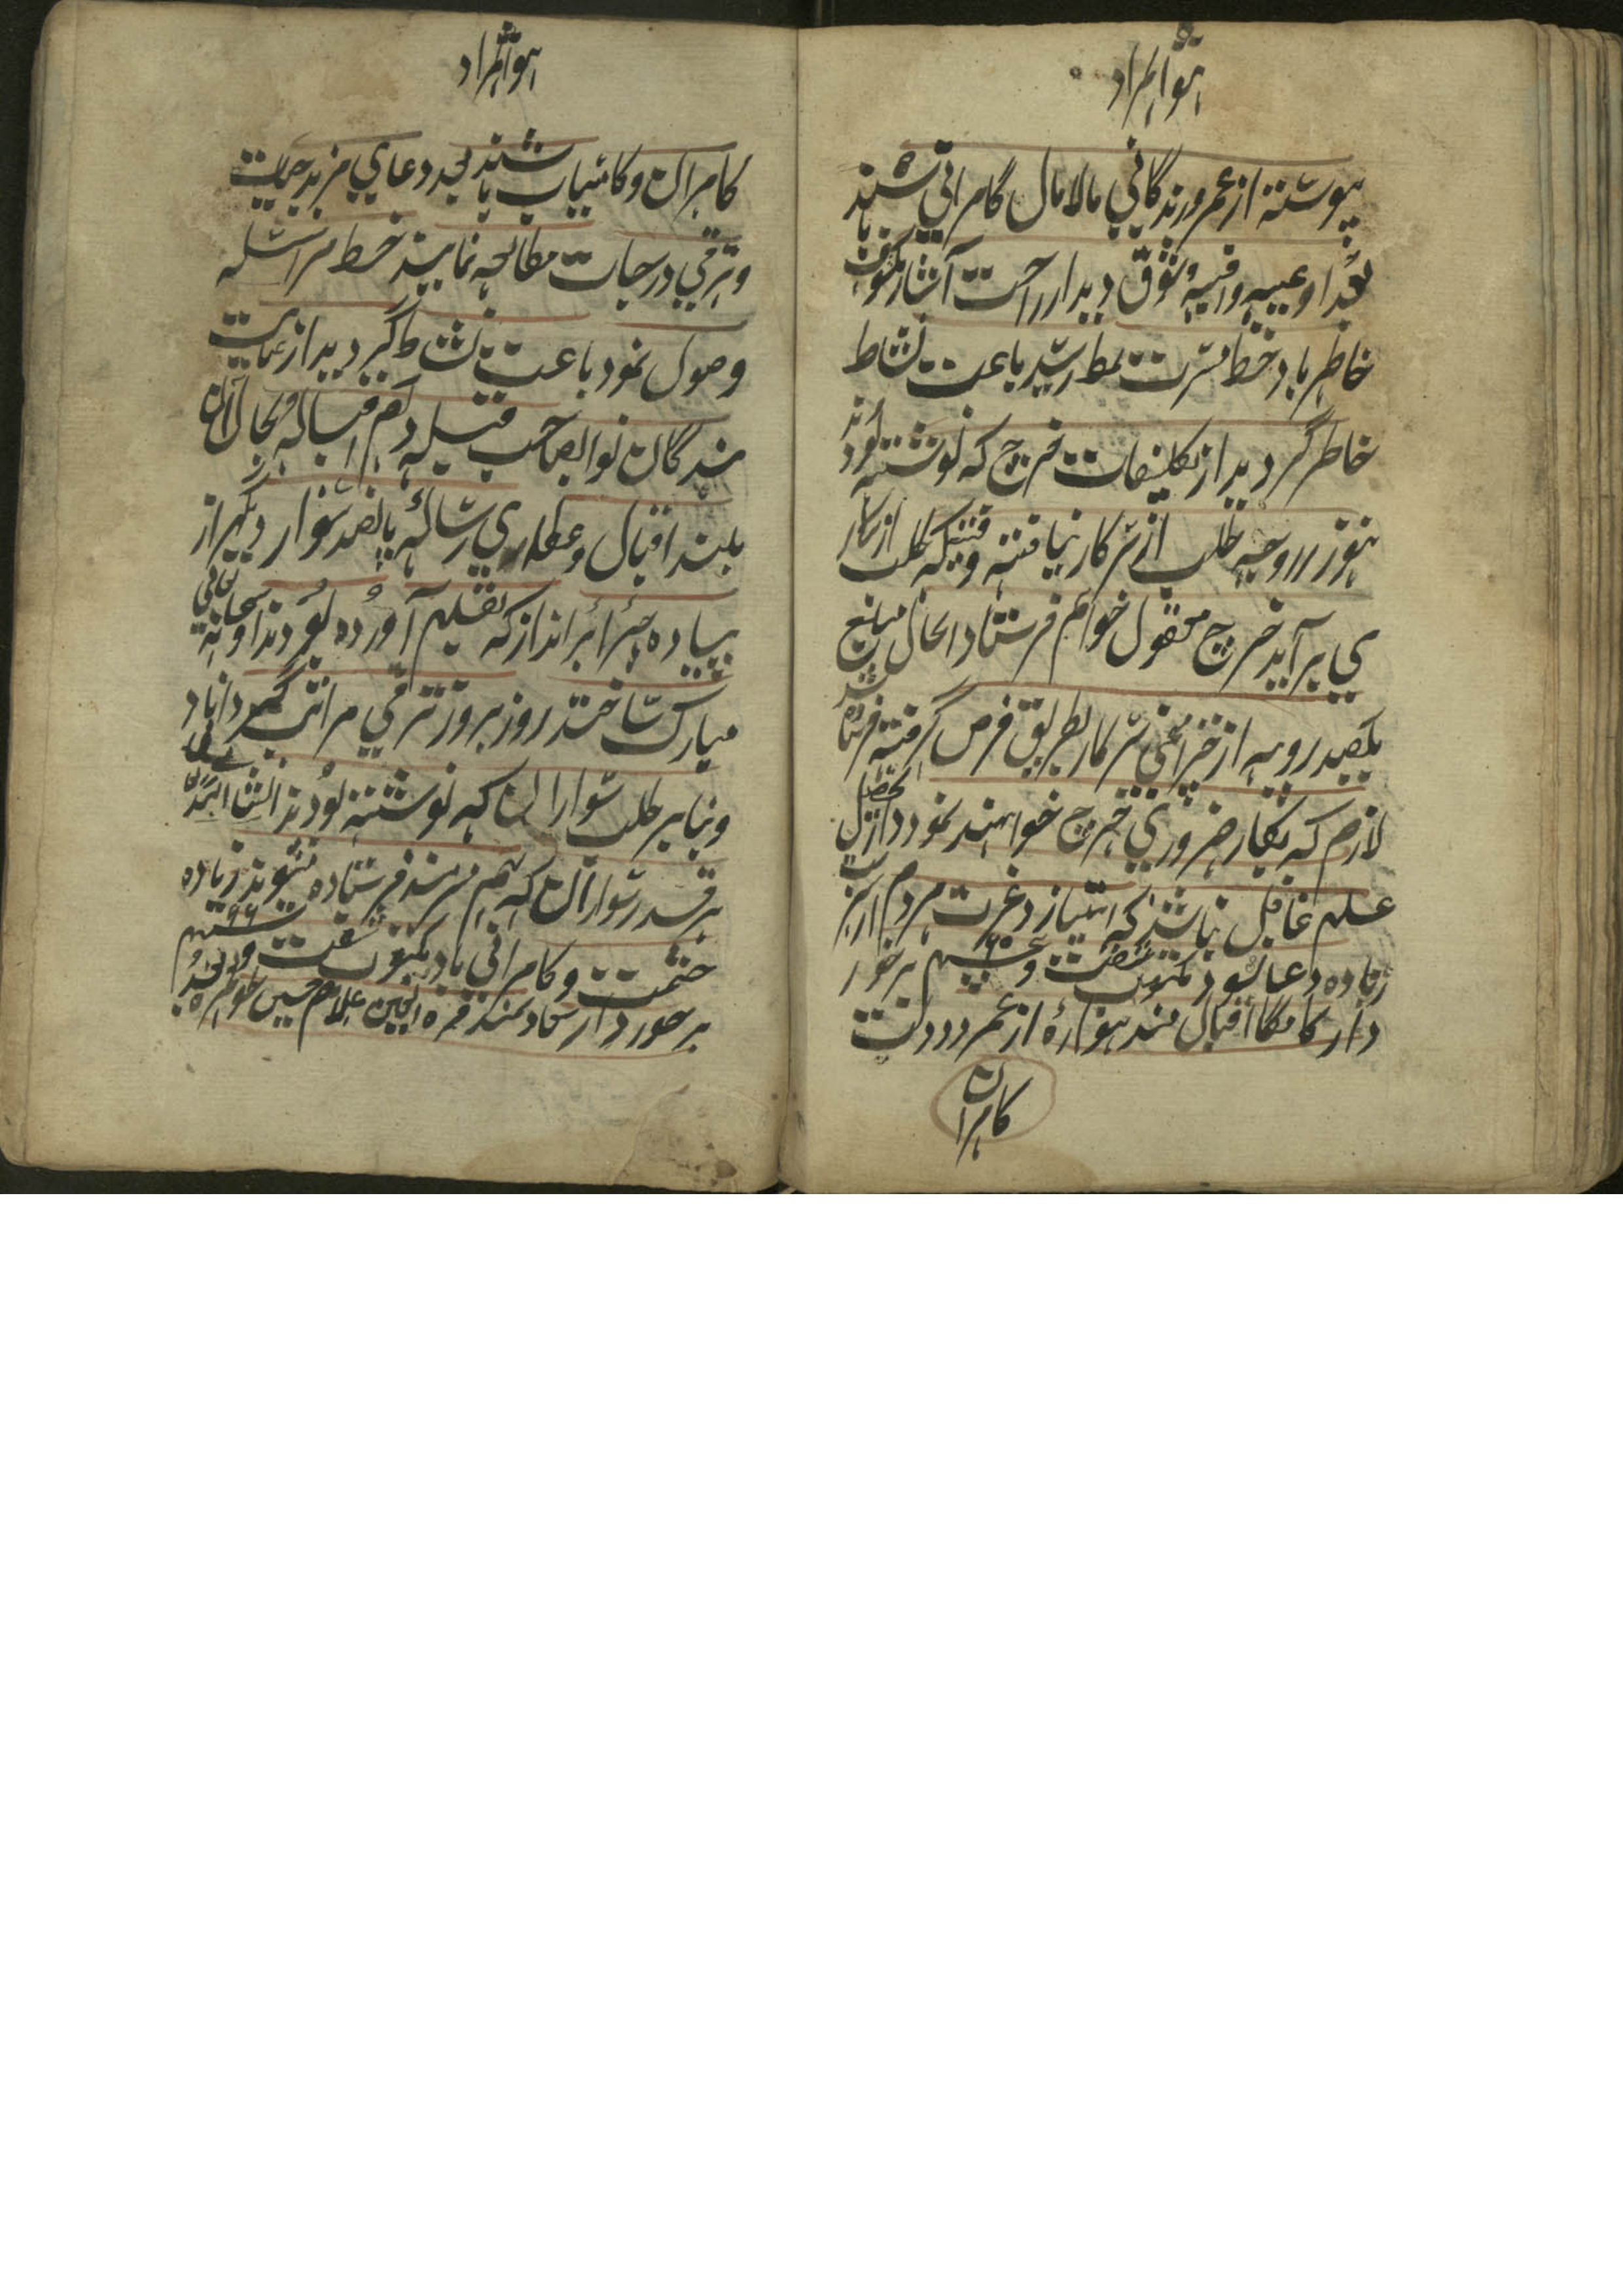 هو المراد
پیوسته از عمر و زندگانی مالامال کامرانی باشند
بعد ادعیه وافیه و شوق دیدار راحت آثار مکشوف
خاطر باد خط مسرت نمط رسید باعث نشاط
خاطر گردید از تکلیفات خرچ که نوشته بودند
هنوز در وجه طلب از سرکار نیافته وقتیکه طلب از سرکار
می برآید خرچ معقول خواهم فرستاد الحال مبلغ
یکصد روپیه از خزانچی سرکار بطریق قرض گرفته فرستاده شد
لازم که بکار ضروری خرچ خواهند نمود و از تحصیل
علم غافل نباشند که امتیاز و عزت مردم از
زیاده دعا بود مکتوب شصت و پنجم ۶۵ برخور
دار کامگار اقبال مند همواره از عمر و دولت
کامران
هو المراد
کامران و کامیاب باشند بعد دعای مزید حیات
و ترقی درجات مطالعه نمایند خط مرسله
وصول نمود باعث نشاط گردید از عنایت
بندگان نواب صاحب قبله دام اقباله بحال آن
بلند اقبال و عطای رساله پانصد سوار دیگر از
پیاده که بقلم آورده بودند او سبحانه تعالی
مبارک ساخته روز بروز ترقی مراتب گرداناد
و بنابر طلب سواران که نوشته بودند انشاء الله تعالی
هر قدر سواران که بهم میرسند فرستاده میشوند زیاده
حشمت و کامرانی باد مکتوب شصت و ششم ۶۶
برخوردار سعادتمند قرة العین غلام حسین طولعمره بعد